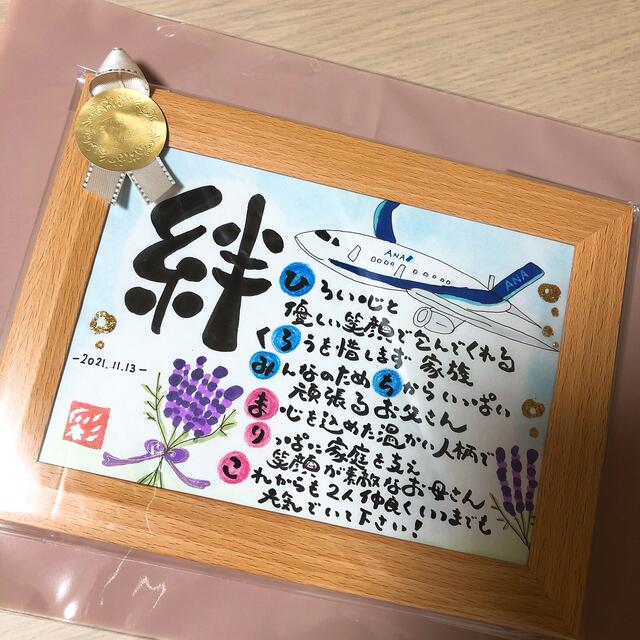 絆
ANA
ANA
ひろい心と
優しい笑顔で包んでくれる
くろうを惜しまず 家族
みんなのため ちからいっぱい
頑張るお父さん
まごころを込めた温かい人柄で
りっぱに家庭を支え
笑顔が素敵なお母さん
これからも2人仲良くいつまでも
元気でいて下さい!
-2021.11.13-
彩